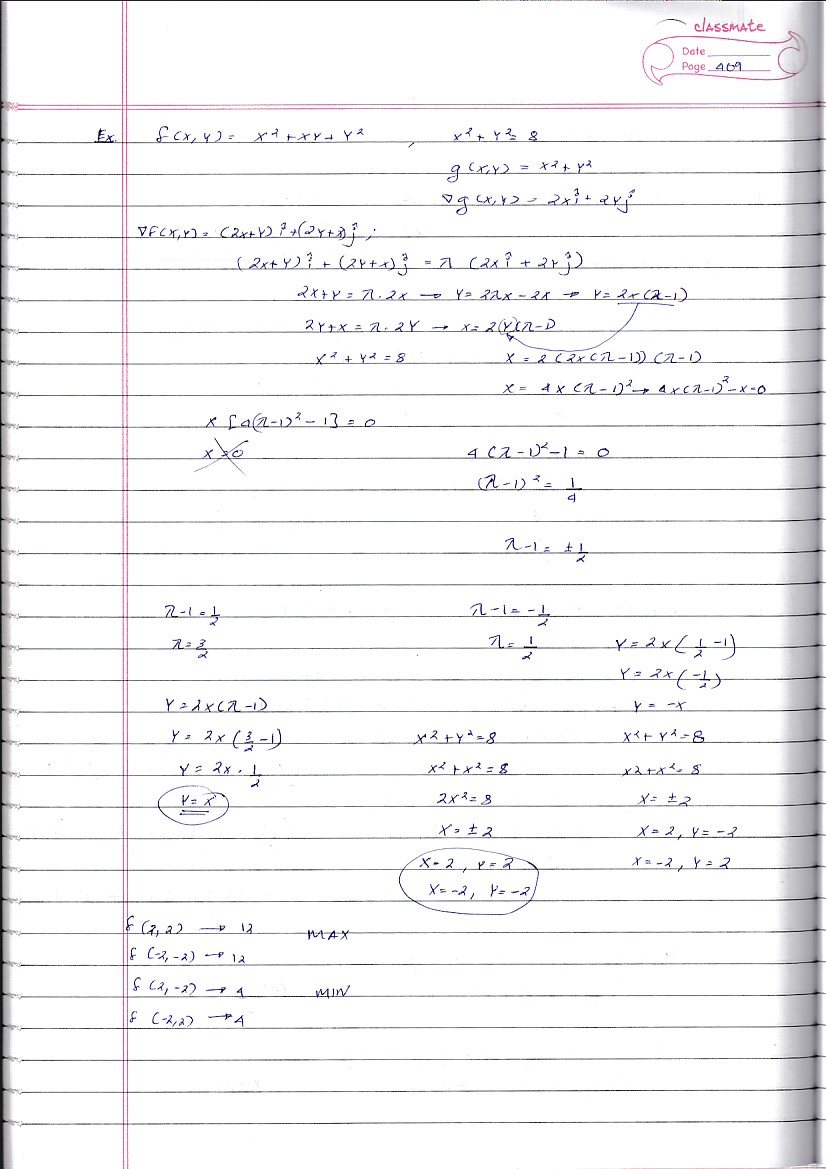 classmate
Date
Page 409
Ex. f(x,y) = x² + xy + y² , x² + y² = 8
g(x,y) = x² + y²
∇g(x,y) = 2xî + 2yĵ
∇f(x,y) = (2x+y)î + (2y+x)ĵ ;
(2x+y)î + (2y+x)ĵ = λ (2xî + 2yĵ)
2x+y = λ·2x → y = 2λx - 2x → y = 2x(λ-1)
2y+x = λ·2y → x = 2(y)(λ-1)
x² + y² = 8 x = 2(2x(λ-1))(λ-1)
x = 4x(λ-1)² → 4x(λ-1)² - x = 0
x [4(λ-1)² - 1] = 0
x = 0 4(λ-1)² - 1 = 0
(λ-1)² = 1/4
λ-1 = ± 1/2
λ-1 = 1/2 λ-1 = -1/2
λ = 3/2 λ = 1/2 y = 2x(1/2 - 1)
y = 2x(-1/2)
y = 2x(λ-1) y = -x
y = 2x(3/2 - 1) x² + y² = 8 x² + y² = 8
y = 2x · 1/2 x² + x² = 8 x2 + x² = 8
y = x 2x² = 8 x = ± 2
x = ± 2 x = 2, y = -2
x = 2, y = 2 x = -2, y = 2
x = -2, y = -2
f(2,2) → 12 MAX
f(-2,-2) → 12
f(2,-2) → 4 MIN
f(-2,2) → 4